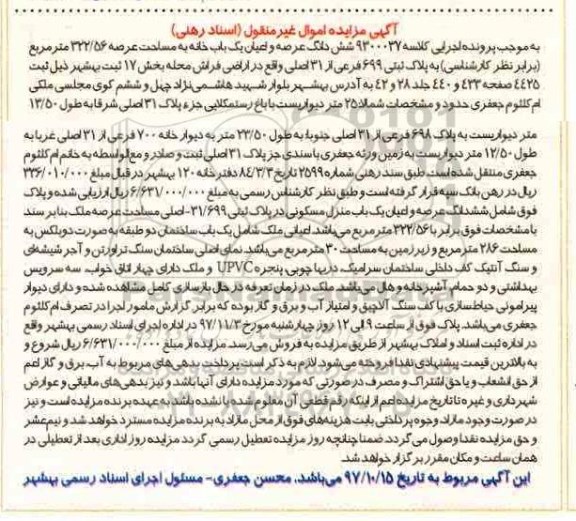 آگهی مزایده اموال غیرمنقول (اسناد رهنی)
به موجب پرونده اجرایی کلاسه ۹۳۰۰۰۳۷ شش دانگ عرصه و اعیان یک باب خانه به مساحت عرصه ۳۲۲/۵۶ مترمربع
(برابر نظر کارشناسی) به پلاک ثبتی ۶۹۹ فرعی از ۳۱ اصلی واقع در اراضی فراش محله بخش ۱۷ ثبت بهشهر ذیل ثبت
۴۴۲۵ صفحه ۴۳۳ و ۴۴۰ جلد ۲۸ و ۴۲ به آدرس بهشهر بلوار شهید هاشمی‌نژاد چهل و ششم کوی مجلسی ملکی
ام کلثوم جعفری حدود و مشخصات شمالا: ۲۵ متر دیواریست با باغ رستمکلایی جزء پلاک ۳۱ اصلی شرقا به طول ۱۳/۵۰
متر دیواریست به پلاک ۶۹۸ فرعی از ۳۱ اصلی جنوبا: به طول ۲۳/۵۰ متر به دیوار خانه ۷۰۰ فرعی از ۳۱ اصلی غربا به
طول ۱۲/۵۰ متر دیواریست به زمین ورثه جعفری با سندی جز پلاک ۳۱ اصلی ثبت و صادر و مع‌الواسطه به خانم ام کلثوم
جعفری منتقل شده است. طبق سند رهنی شماره ۲۵۹۹ تاریخ ۸۴/۳/۳ دفترخانه ۱۲۰ بهشهر در قبال مبلغ ۳۳۶/۰۱۰/۰۰۰
ریال در رهن بانک سپه قرار گرفته است و طبق نظر کارشناس رسمی به مبلغ ۶/۶۳۱/۰۰۰/۰۰۰ ریال ارزیابی شده و پلاک
فوق شامل ششدانگ عرصه و اعیان یک باب منزل مسکونی در پلاک ثبتی ۳۱/۶۹۹- اصلی مساحت عرصه ملک بنا بر سند
با مشخصات فوق برابر با ۳۲۲/۵۶ مترمربع می‌باشد. اعیانی ملک شامل یک باب ساختمان دو طبقه به صورت دوبلکس به
مساحت ۲۸۶ مترمربع و زیرزمین به مساحت ۳۰ مترمربع می‌باشد. نمای اصلی ساختمان سنگ تراورتن و آجر شیشه‌ای
و سنگ آنتیک کف داخلی ساختمان سرامیک، دربها چوبی، پنجره UPVC و ملک دارای چهار اتاق خواب، سه سرویس
بهداشتی و دو حمام، آشپزخانه و هال می‌باشد. ملک در زمان تعرفه در حال بازسازی کامل مشاهده شده و دارای دیوار
پیرامونی حیاط‌سازی با کف سنگ آلاچیق و امتیاز آب و برق و گاز بوده که برابر گزارش مامور اجرا در تصرف ام کلثوم
جعفری می‌باشد. پلاک فوق از ساعت ۹ الی ۱۲ روز چهارشنبه مورخ ۹۷/۱۱/۳ در اداره اجرای اسناد رسمی بهشهر واقع
در اداره ثبت اسناد و املاک بهشهر از طریق مزایده به فروش می‌رسد. مزایده از مبلغ ۶/۶۳۱/۰۰۰/۰۰۰ ریال شروع و
به بالاترین قیمت پیشنهادی نقدا فروخته می‌شود. لازم به ذکر است پرداخت بدهی‌های مربوط به آب، برق و گاز اعم
از حق انشعاب و یا حق اشتراک و مصرف در صورتی که مورد مزایده دارای آنها باشد و نیز بدهی‌های مالیاتی و عوارض
شهرداری و غیره تا تاریخ مزایده اعم از اینکه رقم قطعی آن معلوم شده یا نشده باشد به عهده برنده مزایده است و نیز
در صورت وجود مازاد، وجوه پرداختی بابت هزینه‌های فوق از محل مازاد به برنده مزایده مسترد خواهد شد و نیم‌عشر
و حق مزایده نقدا وصول می‌گردد. ضمنا چنانچه روز مزایده تعطیل رسمی گردد مزایده روز اداری بعد از تعطیلی در
همان ساعت و مکان مقرر برگزار خواهد شد.
این آگهی مربوط به تاریخ ۹۷/۱۰/۱۵ می‌باشد. محسن جعفری- مسئول اجرای اسناد رسمی بهشهر